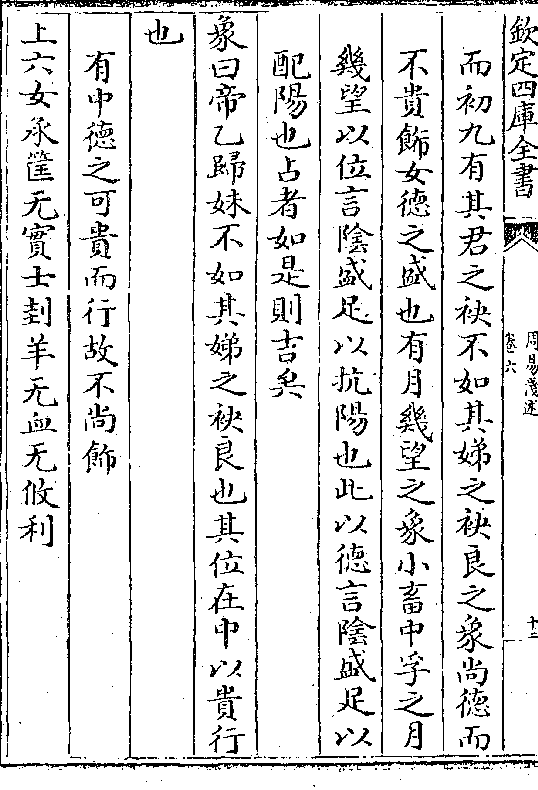 欽定四庫全書
周易淺述
卷六
十二
而初九有其君之袂不如其娣之袂良之象尚德而
不貴飾女德之盛也有月幾望之象小畜中孚之月
幾望以位言陰盛足以抗陽也此以德言陰盛足以
配陽也占者如是則吉矣
象曰帝乙歸妹不如其娣之袂良也其位在中以貴行
也
有中德之可貴而行故不尚飾
上六女承筐无實士刲羊无血无攸利